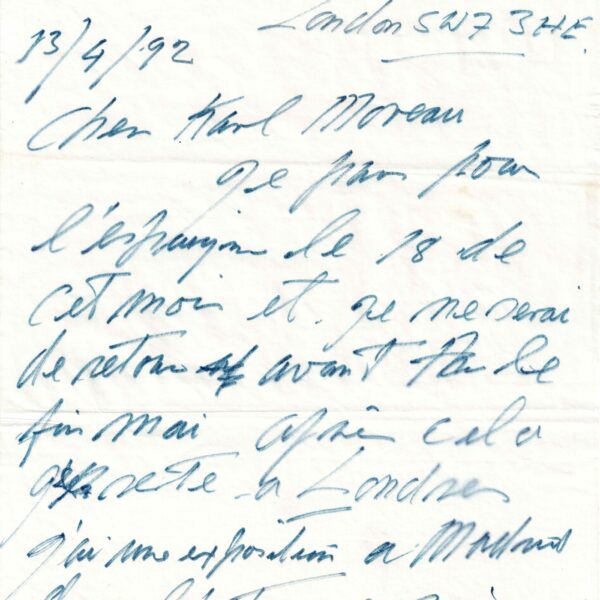 London SW7 3HE.
13/4/92
Cher Karl Moreau
Je pars pour
l'espagne le 18 de
cet mois et je ne serai
de retour avant la
fin mai après cela
je reste a Londres
j'ai une exposition a Madrid